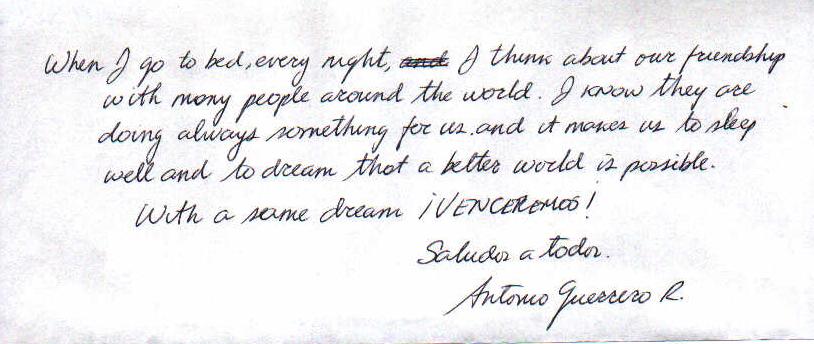 When I go to bed, every night, and I think about our friendship
with many people around the world. I know they are
doing always something for us. and it makes us to sleep
well and to dream that a better world is possible.
With a same dream ¡VENCEREMOS!
Saludos a todos.
Antonio Guerrero R.